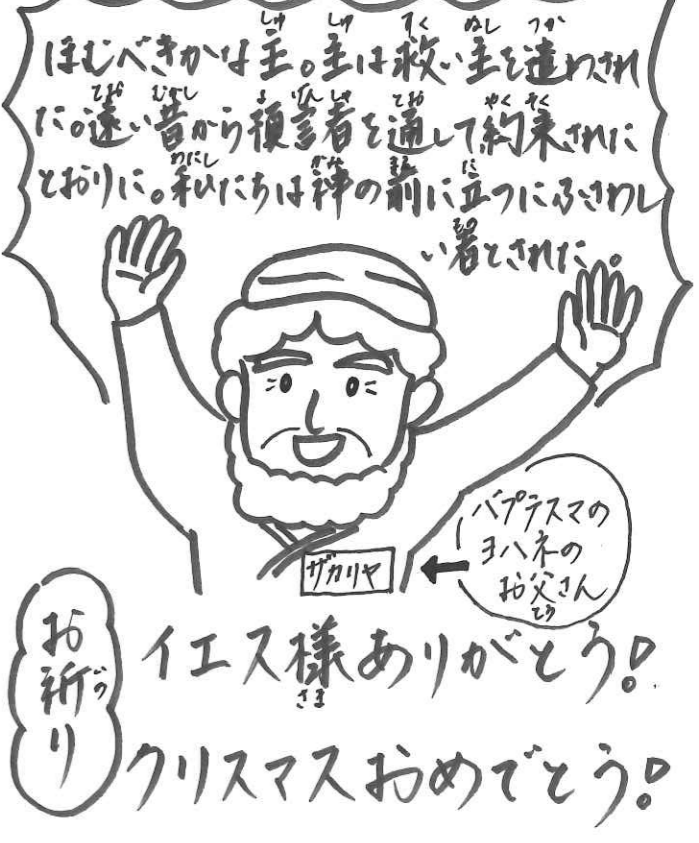 ほむべきかな主。主は救い主を遣わされ
た。遠い昔から預言者を通して約束された
とおりに。私たちは神の前に立つにふさわし
い者とされた。
バプテスマの
ヨハネの
お父さん
ザカリヤ
お祈り
イエス様ありがとう!
クリスマスおめでとう!